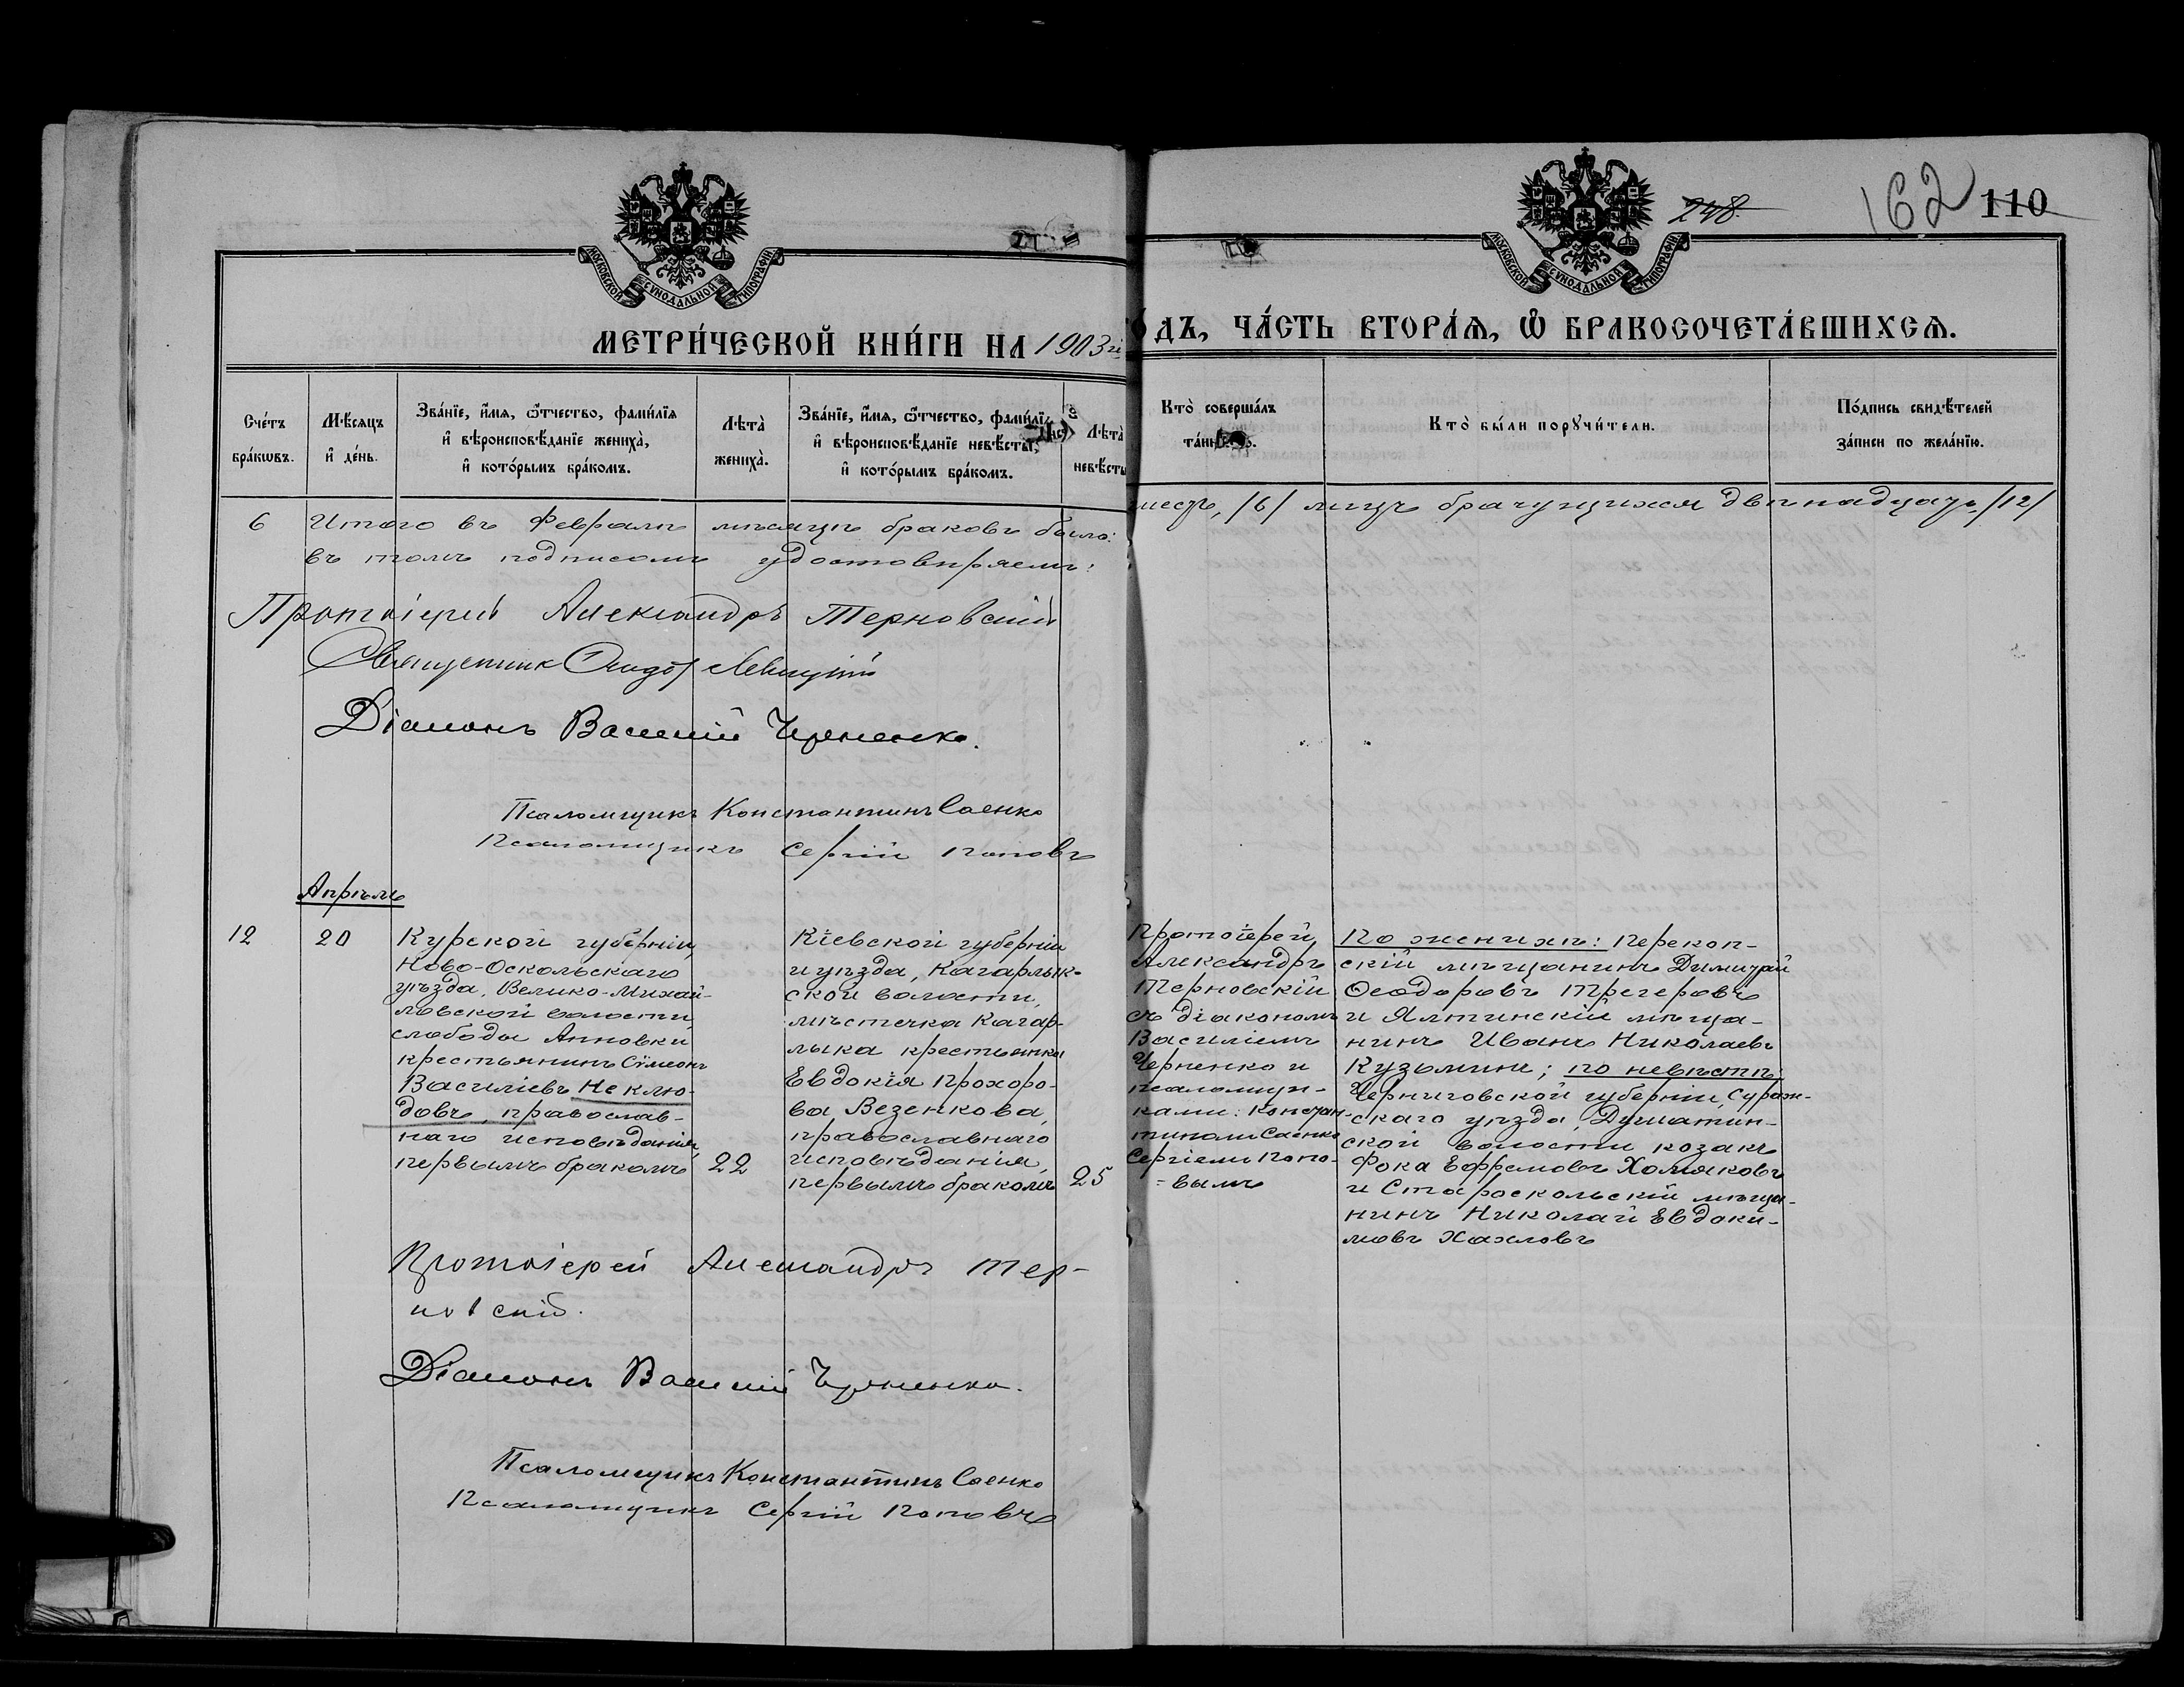 248
162
110
МОСКОВСКОЙ СѴНОДАЛЬНОЙ ТИПОГРАФІИ
МОСКОВСКОЙ СѴНОДАЛЬНОЙ ТИПОГРАФІИ
МЕТРИ́ЧЕСКОЙ КНИ́ГИ НА 1903 го́ДЪ, ЧА́СТЬ ВТОРА́Ѧ, Ѡ҆ БРАКОСОЧЕТА́ВШИХСѦ.
Сче́тъ
бра́кѡвъ.
Мѣ́сѧцъ
и҆ де́нь.
Зва́нїе, и҆́мѧ, ѻ҆́тчество, фами́лїѧ
и҆ вѣроисповѣ́данїе жениха̀,
и҆ кото́рымъ бра́комъ.
Лѣта̀
жениха̀.
Зва́нїе, и҆́мѧ, ѻ҆́тчество, фами́лїѧ
и҆ вѣроисповѣ́данїе невѣ́сты,
и҆ кото́рымъ бра́комъ.
Лѣта̀
невѣ́сты
Кто̀ соверша́лъ
та́инство.
Кто̀ бы́ли порꙋчи́тели.
По́дпись свидѣ́телей
за́писи по жела́нїю.
6 Итого въ Февралѣ мѣсяцѣ браковъ было: шесть, /6/ лицъ брачущихся двѣнадцать, /12/
въ томъ подписомъ удостовѣряемъ:
Протоіерей Александръ Терновскій
Священникъ Левицкій
Діаконъ Василій Черненко.
Псаломщикъ Константинъ Саенко
Псаломщикъ Сергій Поповъ
Апрѣль
12
20
Курской губерніи,
Ново-Оскольскаго
уѣзда, Велико-Михай-
ловской волости,
слободы Анновки
крестьянинъ Сѵмеонъ
Василіевъ Неклю-
довъ, православ-
наго исповѣданія,
первымъ бракомъ
22
Кіевской губерніи
и уѣзда, Кагарлык-
ской волости,
мѣстечка Кагар-
лыка крестьянка
Евдокія Прохоро-
ва Везенкова,
православнаго
исповѣданія,
первымъ бракомъ
25
Протоіерей
Александръ
Терновскій
съ діакономъ
Василіемъ
Черненко и
псаломщи-
ками: Констан-
тиномъ Саенко
Сергіемъ Попо-
-вымъ
По женихѣ: Перекоп-
скій мѣщанинъ Димитрій
Ѳеодоровъ Трегеровъ
и Ялтинскій мѣща-
нинъ Иванъ Николаевъ
Кузьминъ; по невѣстѣ:
Черниговской губерніи, Сураж-
скаго уѣзда, Душатин-
ской волости козакъ
Фока Ефремовъ Хомяковъ
и Старооскольскій мѣща-
нинъ Николай Евдоки-
мовъ Хахловъ
Протоіерей Александръ Тер-
новскій.
Діаконъ Василій Черненко.
Псаломщикъ Константинъ Саенко
Псаломщикъ Сергій Поповъ